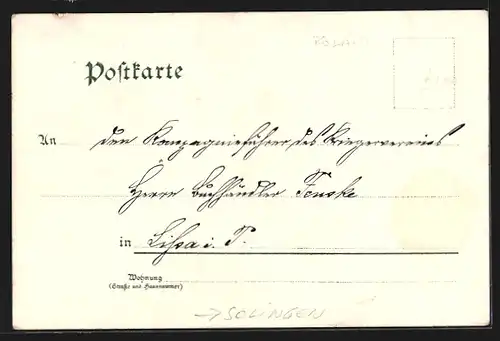 Postkarte
An den Kompagnieführer des Kriegervereins
Herrn Buchhändler Fenske
in Lissa i. P.
Wohnung
(Straße und Hausnummer)
→ SOLINGEN